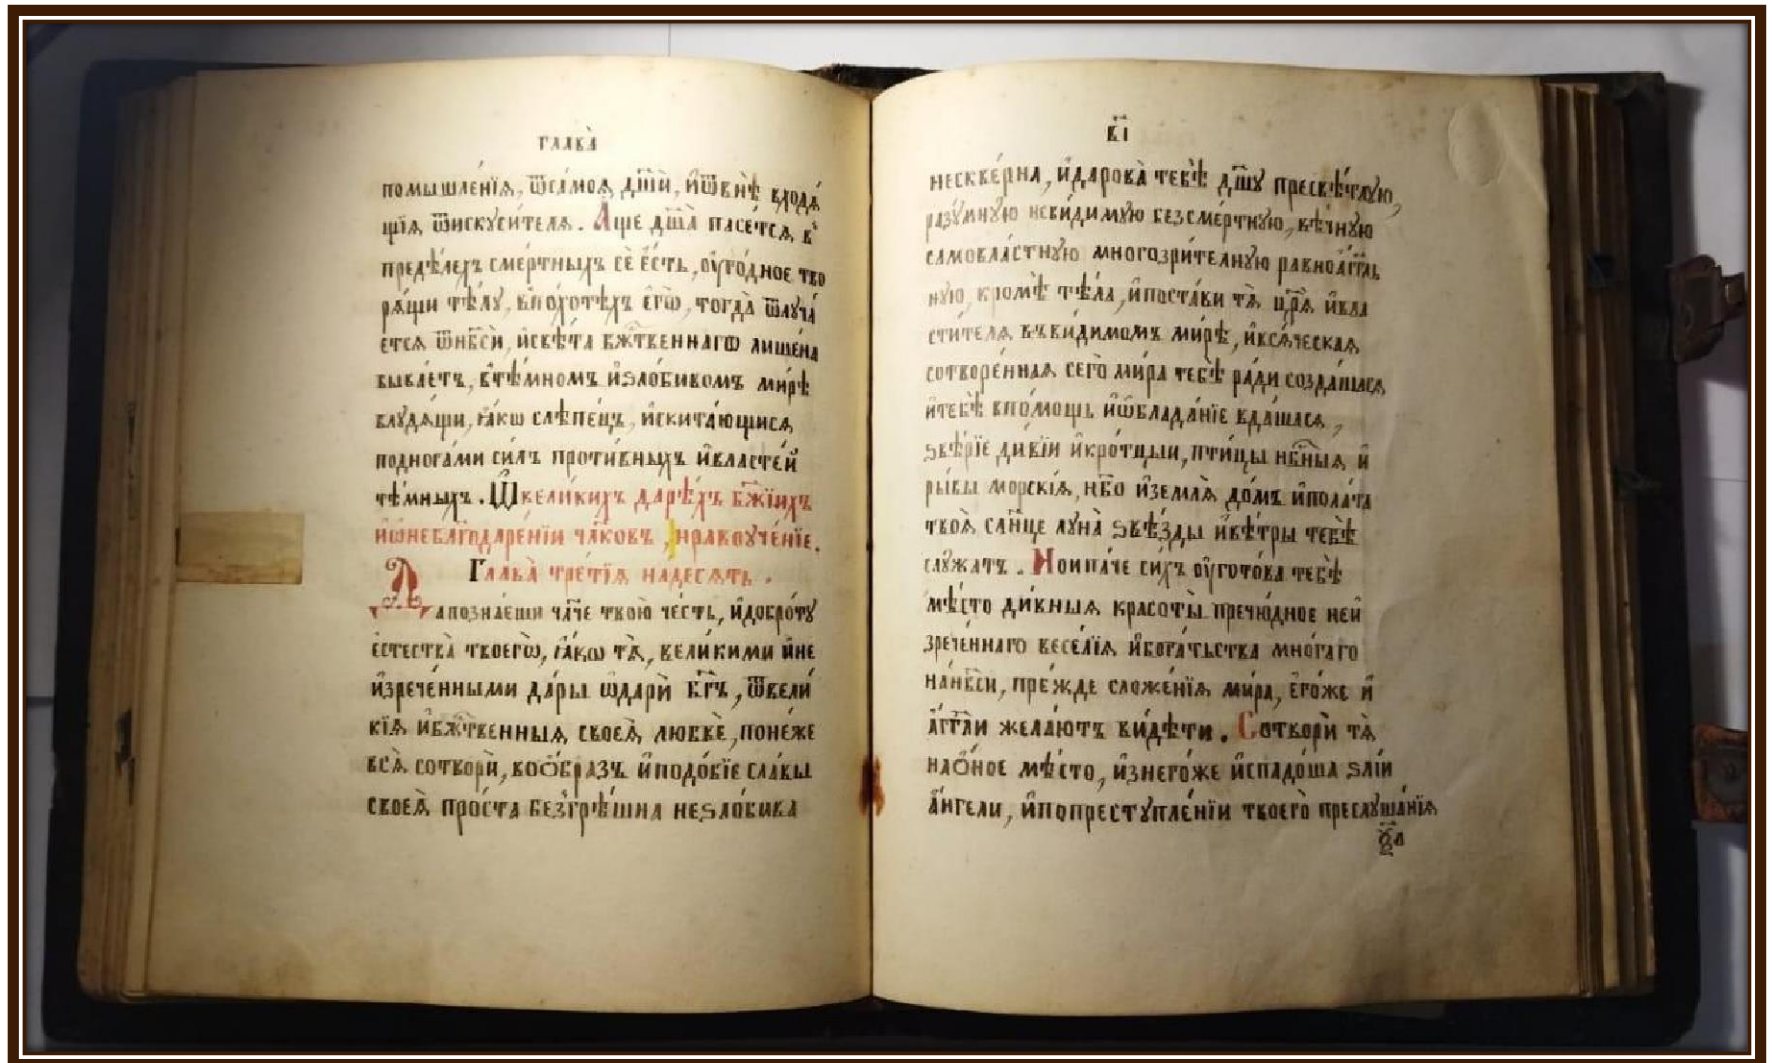 глава̀
помышле́нїѧ, ѿса́моѧ дш҃ѝ, и҆ѿвнѣ̀ входѧ́
щїѧ ѿискуси́телѧ. А҆́ще дш҃а̀ пасе́тсѧ в̾
предѣ́лехъ сме́ртныхъ сѐ є҆́сть, оу҆го́дное тво
рѧ́щи тѣ́лу, впо́хотѣхъ є҆гѡ̀, тогда̀ ѿлуча́
етсѧ ѿнб҃сѝ, и҆свѣ́та бж҃твеннагѡ лише́на
быва́етъ, в̾те́мномъ и҆ѕло́бивомъ ми́рѣ
блудѧ́щи, ꙗ҆́кѡ слѣпе́цъ, и҆скита́ющисѧ
подногáми си́лъ проти́вныхъ и҆власте́й
те́мныхъ. Ѡ҆вели́кихъ дарѣ́хъ бж҃їихъ
и҆ѡ҆небл҃годаре́нїи чл҃ковъ, нравоуче́нїе.
Глава̀ тре́тїѧ на́десѧть.
Да познае́ши чл҃че твою̀ че́сть, и҆добро́ту
є҆стества̀ твоегѡ̀, ꙗ҆́кѡ тѧ̀, вели́кими и҆не
и҆зрече́нными да́ры ѡ҆дарѝ бг҃ъ, ѿвели́
кїѧ и҆бж҃твенныѧ своеѧ̀ любвѐ, поне́же
всѧ̀ сотворѝ, воѻ҆́бразъ и҆подо́бїе сла́вы
своеѧ̀ про́ста безгрѣ́шна неѕло́бива
в҃і
нескве́рна, и҆дарова̀ тебѣ̀ дш҃у пресвѣ́тлую,
разу́мную неви́димую безсме́ртную, вѣ́чную
самовла́стную многозри́телную равноа҆́гг҃ль
ную, кромѣ̀ тѣ́ла, и҆поста́ви тѧ̀ цр҃ѧ̀ и҆вла
сти́телѧ въви́димомъ ми́рѣ, и҆всѧ́ческаѧ
сотворе́ннаѧ сегѡ̀ ми́ра тебѣ̀ ра́ди созда́шасѧ
и҆тебѣ̀ впо́мощь и҆ѡ҆блада́нїе вда́шасѧ,
ѕвѣ́рїе ди́вїи и҆кро́тцыи, пти́цы нб҃ныѧ и҆
ры́бы морскі́ѧ, нб҃о и҆землѧ̀ до́мъ и҆пола́та
твоѧ̀ сл҃нце луна̀ ѕвѣ́зды и҆вѣ́тры тебѣ̀
слу́жатъ. Но и҆па́че си́хъ оу҆гото́ва тебѣ̀
мѣ́сто ди́вныѧ красоты̀ пречю́дное неи҆
зрече́ннаго весе́лїѧ и҆бога́тьства мно́гаго
нанб҃сѝ, пре́жде сложе́нїѧ ми́ра, є҆го́же и҆
а҆́гг҃ли жела́ютъ ви́дѣти. Сотворѝ тѧ̀
наѻ҆́ное мѣ́сто, и҆знего́же и҆спадо́ша ѕлі́и
а҆́нгели, и҆попреступле́нїи твоегѡ̀ преслуша́нїѧ